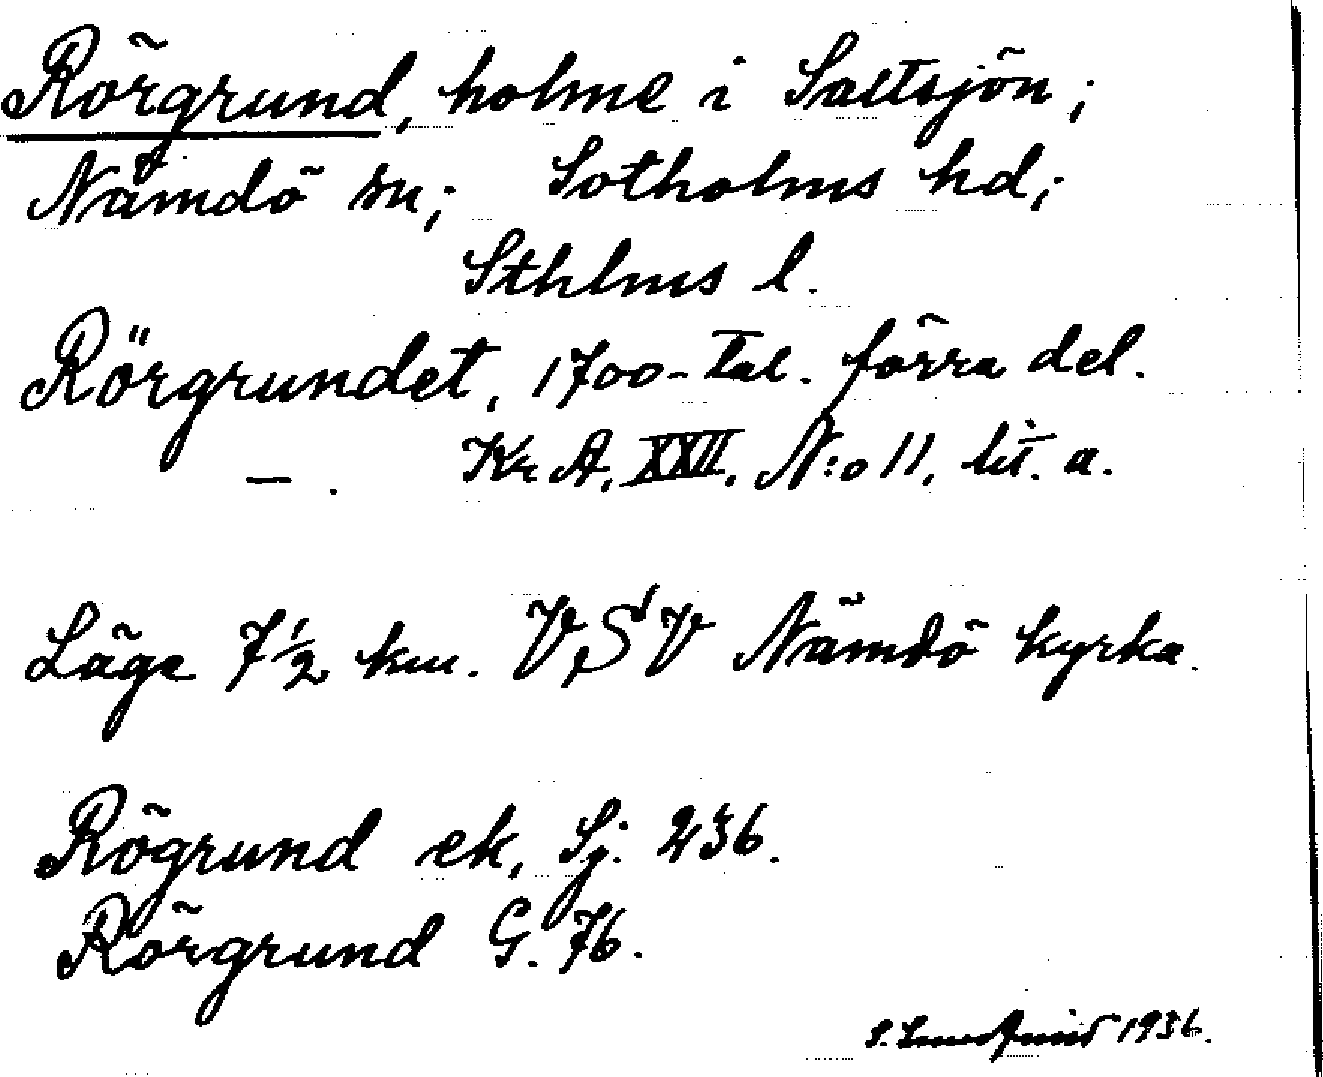 Rörgrund, holme i Saltsjön;
Nämdö sn; Sotholms hd;
Sthlms l.
Rörgrundet, 1700-tal. förra del.
— . Kr A. XXII. N:o 11. lit. a.
Läge 7½ km. VSV Nämdö kyrka.
Rögrund ek, Sj. 236.
Rörgrund G. 76.
S. 1936.